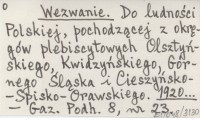 o
Wezwanie. Do ludności
Polskiej, pochodzącej z okrę-
gów plebiscytowych Olsztyń-
skiego, Kwidzyńskiego, Gór-
nego Śląska i Cieszyńsko-
-Spisko-Orawskiego. 1920...
— Gaz. Podh. 8, nr 23.